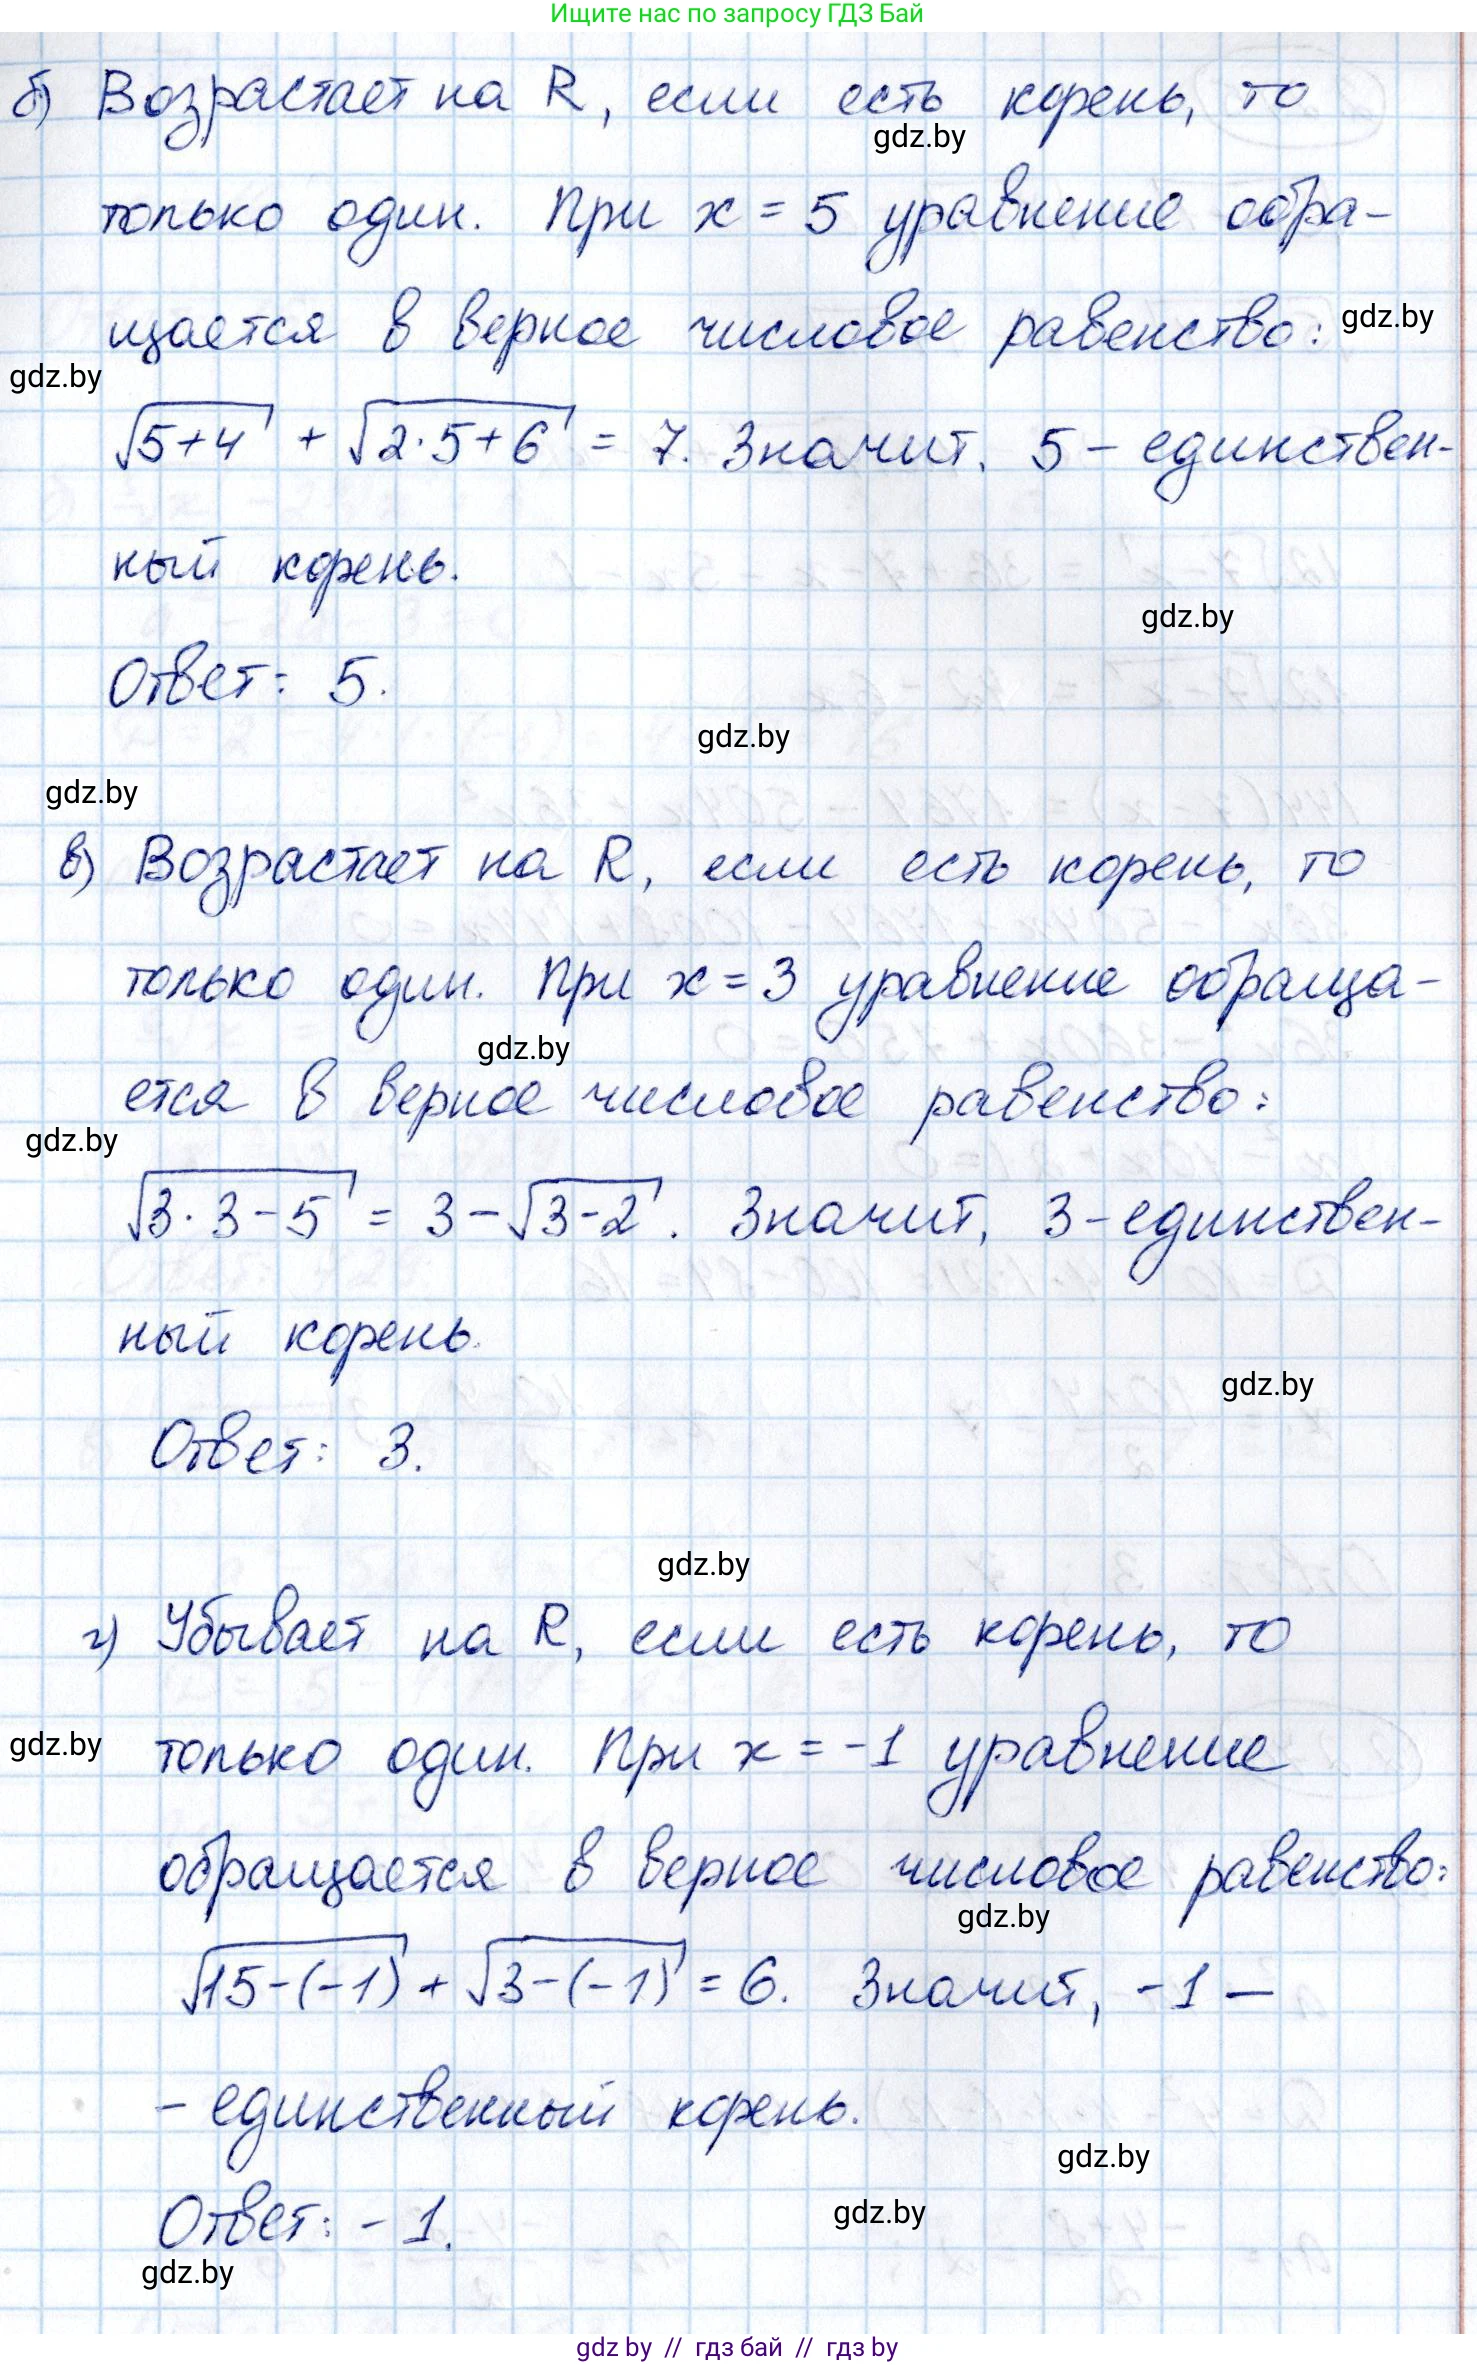 Ищите нас по запросу ГДЗ Бай
б) Возрастает на R, если есть корень, то
gdz.by
только один. При x = 5 уравнение обра-
щается в верное числовое равенство:
gdz.by
gdz.by
√(5+4) + √(2·5+6) = 7. Значит, 5 - единствен-
ный корень.
gdz.by
Ответ: 5.
gdz.by
gdz.by
в) Возрастает на R, если есть корень, то
только один. При x = 3 уравнение обраща-
gdz.by
ется в верное числовое равенство:
gdz.by
√(3·3-5) = 3 - √(3-2). Значит, 3 - единствен-
ный корень.
gdz.by
Ответ: 3.
gdz.by
г) Убывает на R, если есть корень, то
gdz.by
только один. При x = -1 уравнение
обращается в верное числовое равенство:
gdz.by
√(15-(-1)) + √(3-(-1)) = 6. Значит, -1 —
- единственный корень.
gdz.by
Ответ: -1.
gdz.by
gdz.by
gdz by // гдз бай // гдз by